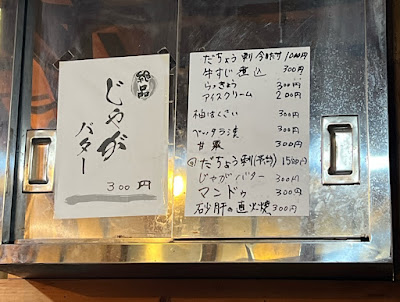 絶品
じゃが
バター
300円
だちょう刺 1000円
牛すじ煮込 300円
らっきょう 300円
アイスクリーム 200円
柚はくさい 300円
ベッタラ漬 300円
300円
だちょう刺 1500円
じゃがバター 300円
マンドゥ 300円
砂肝の直火焼 300円